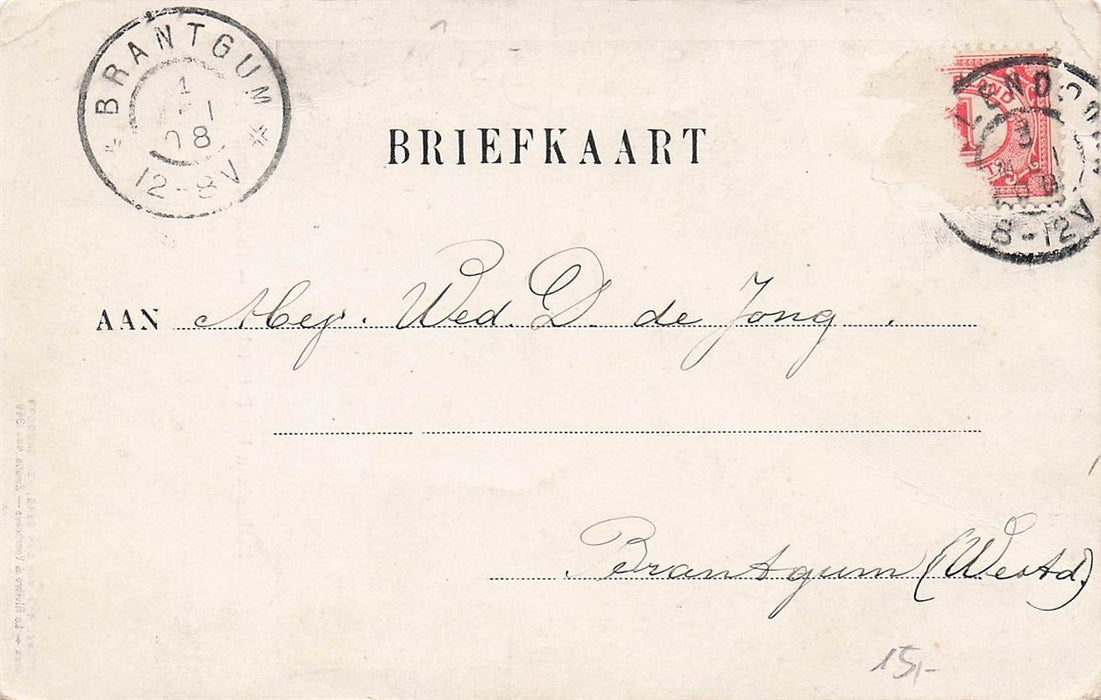 BRANTGUM
1
08
12-8V
BRIEFKAART
8-12V
AAN Mej. Wed. D. de Jong.
Brantgum (Westd.)
15,-